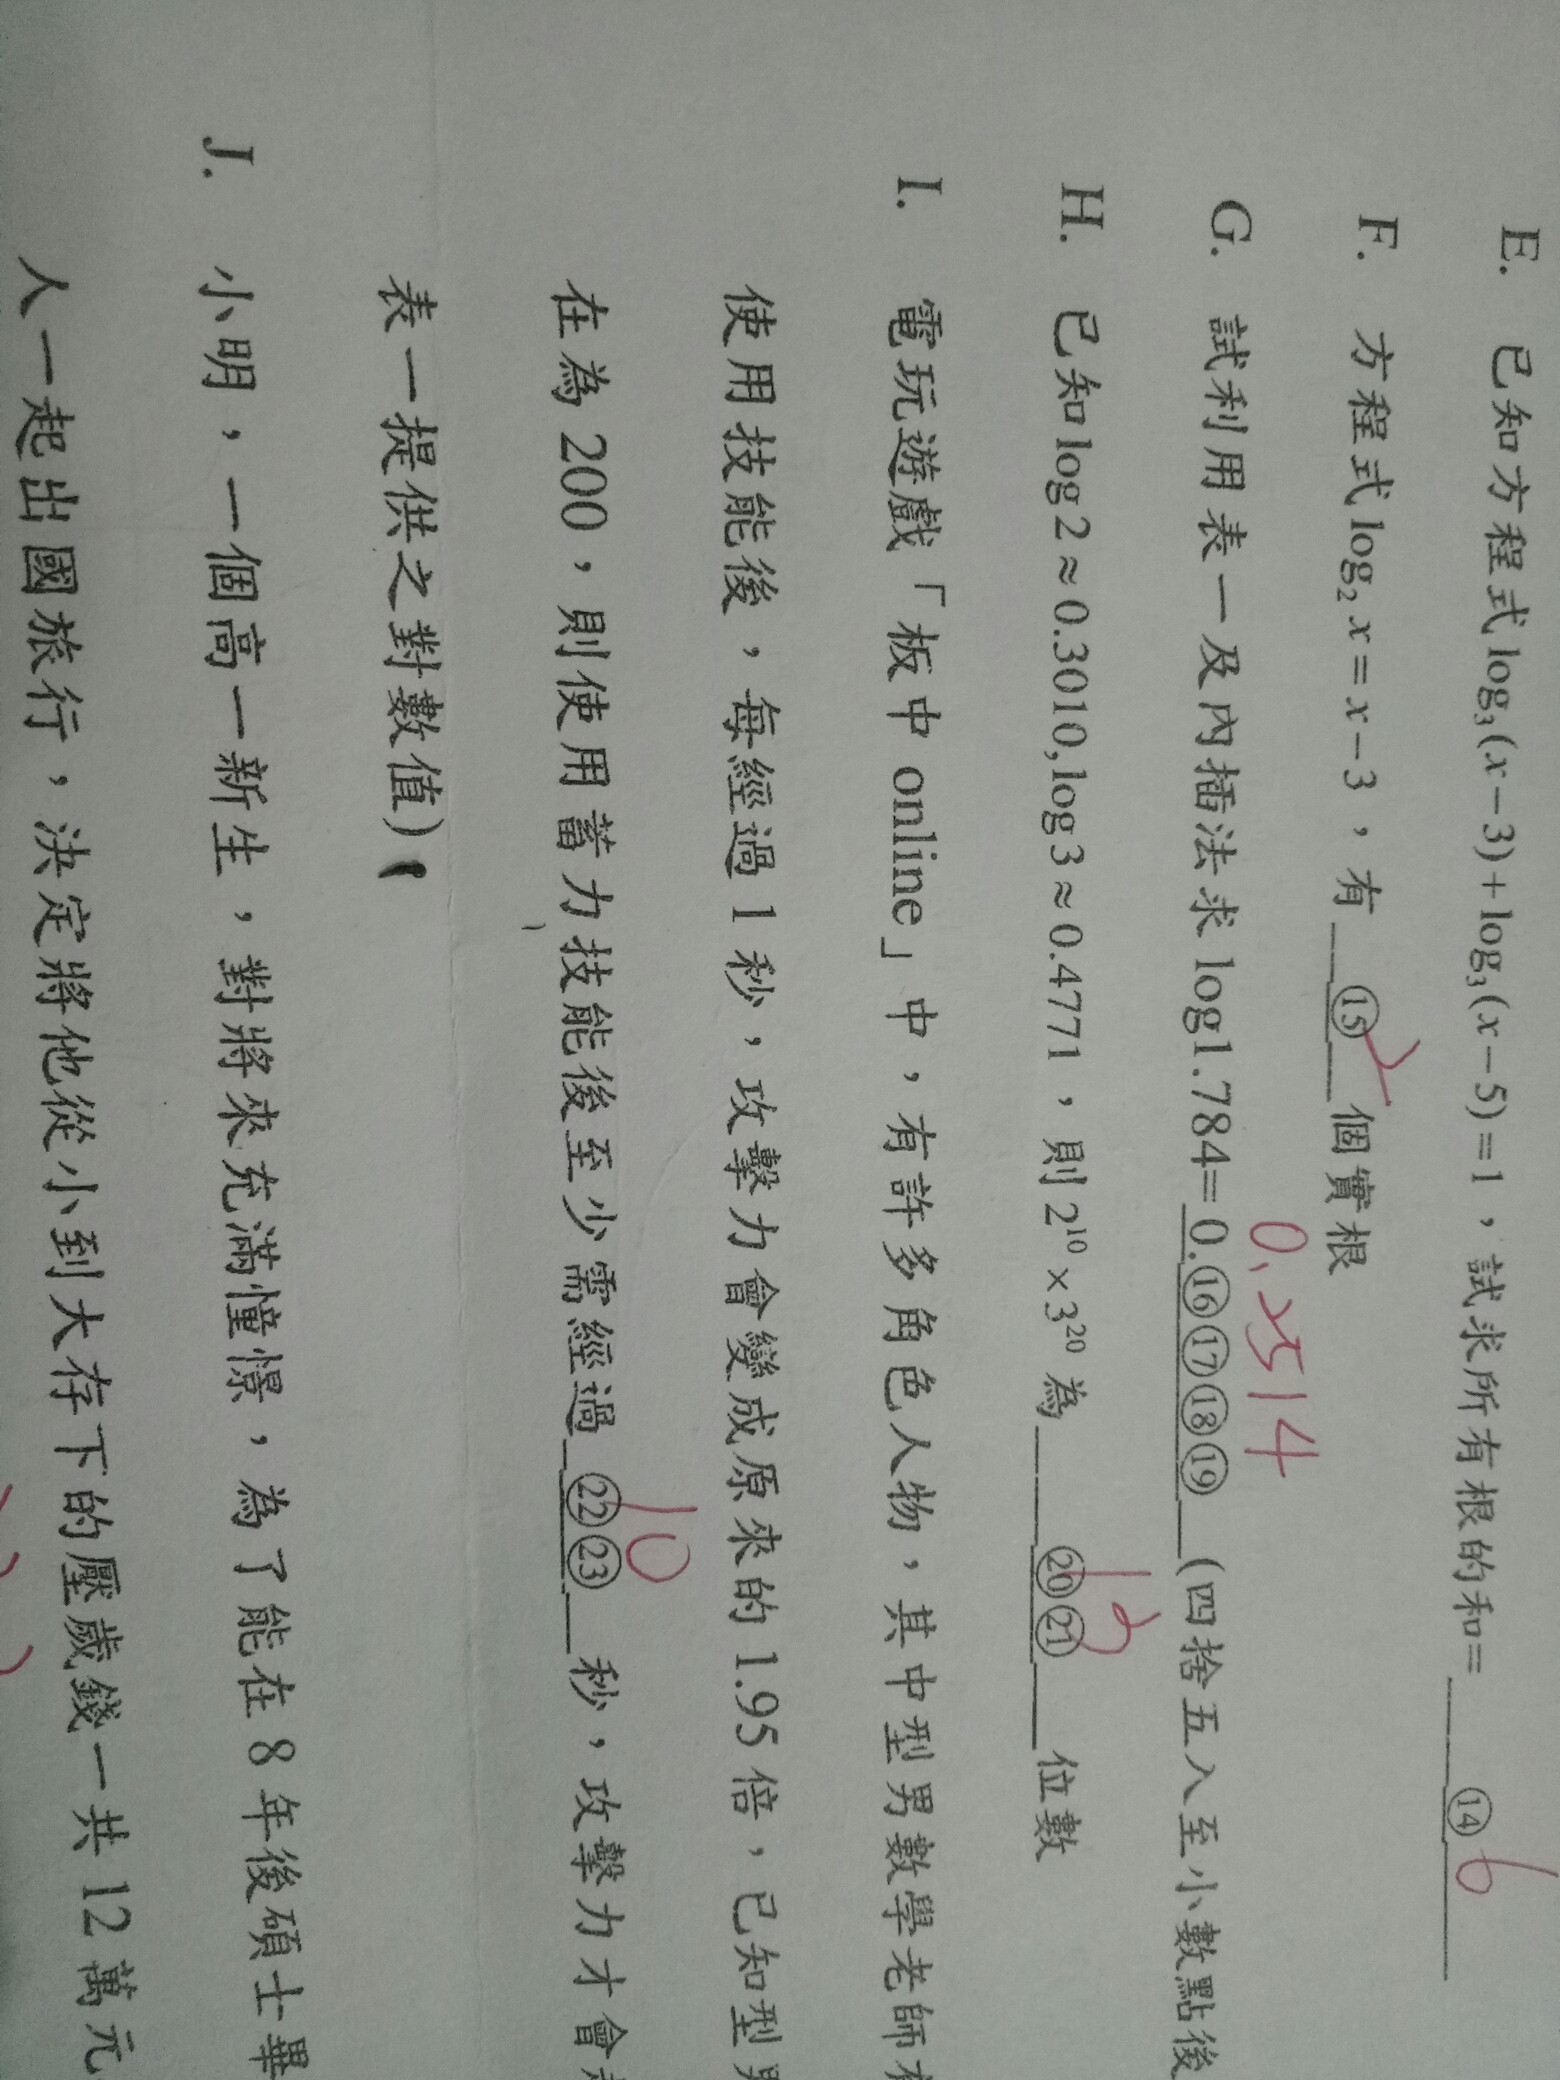 E. 已知方程式 log₃(x−3)+log₃(x−5)=1,試求所有根的和= ⑭ 6
F. 方程式 log₂ x = x−3,有 ⑮ 2 個實根
G. 試利用表一及內插法求 log1.784= 0.⑯⑰⑱⑲ (四捨五入至小數點後
0.2514
H. 已知 log2≈0.3010, log3≈0.4771,則 2¹⁰×3²⁰ 為 ⑳㉑ 位數
I. 電玩遊戲「板中 online」中,有許多角色人物,其中型男數學老師
使用技能後,每經過 1 秒,攻擊力會變成原來的 1.95 倍,已知型男
10
在為 200,則使用蓄力技能後至少需經過 ㉒㉓ 秒,攻擊力才會
表一提供之對數值)
J. 小明,一個高一新生,對將來充滿憧憬,為了能在 8 年後碩士畢
人一起出國旅行,決定將他從小到大存下的壓歲錢一共 12 萬元